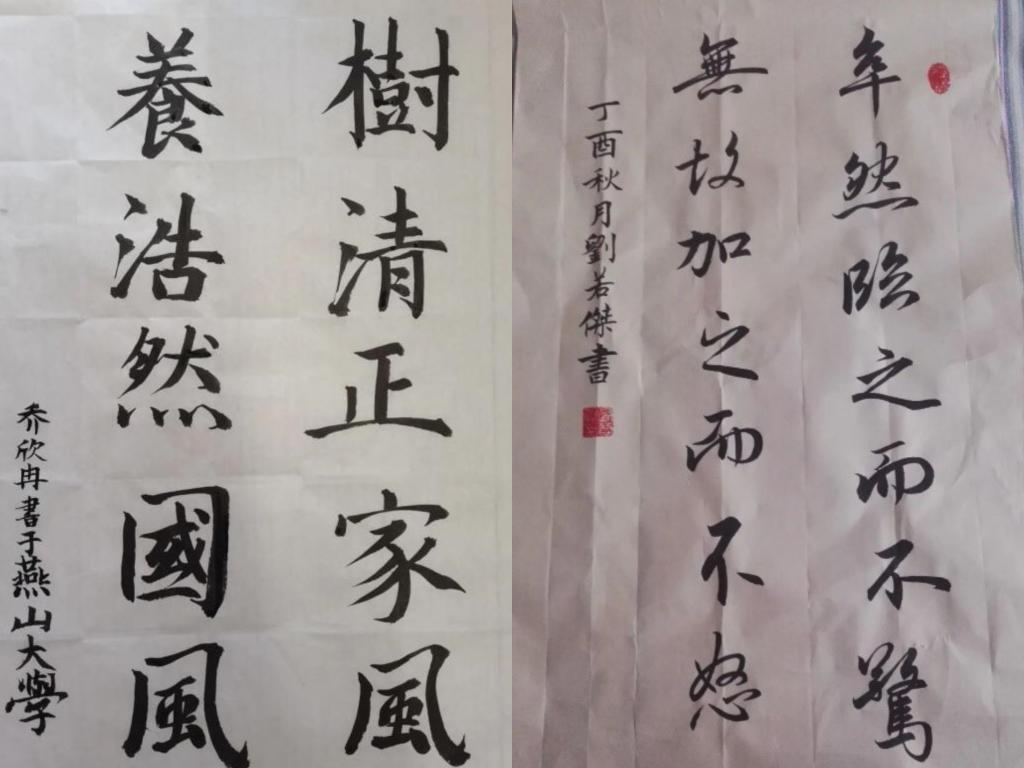 樹清正家風
養浩然國風
乔欣冉書于燕山大學
卒然臨之而不驚
無故加之而不怒
丁酉秋月劉若傑書